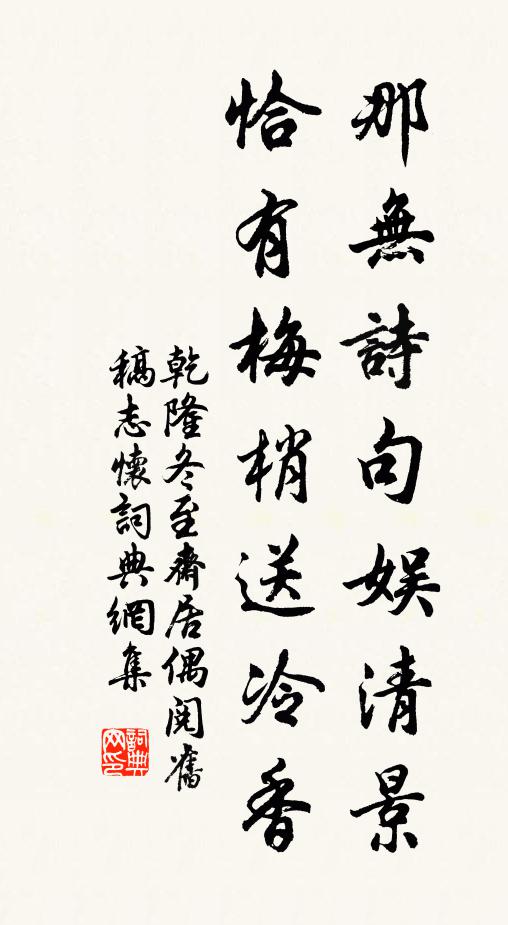 那無詩句娱清景
恰有梅梢送冷香
乾隆冬至齋居偶閱舊
稿志懷詞典網集
詞典
网印